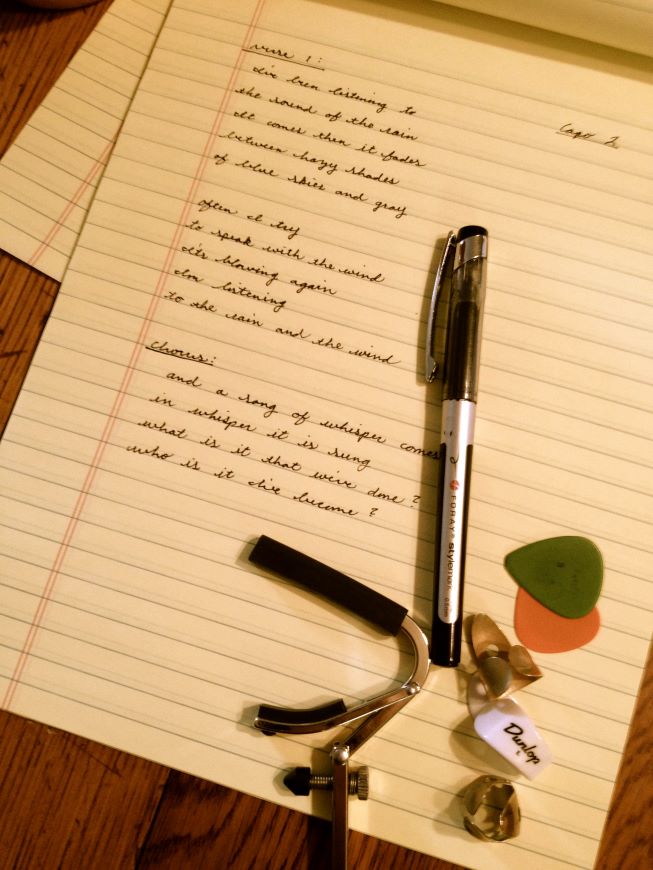 verse 1:
Capo 2
I've been listening to
the sound of the rain
It comes then it fades
between hazy shades
of blue skies and gray
often I try
to speak with the wind
it's blowing again
I'm listening
to the rain and the wind
chorus:
and a song of whisper comes
in whisper it is sung
what is it that we've done?
who is it I've become?
FORAY® stylemark
Dunlop